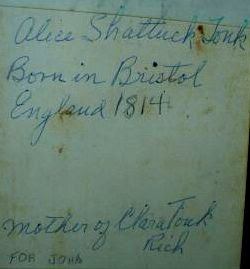 Alice Shattuck Tonk
Born in Bristol
England 1814
Mother of Clara Tonk
Rich
FOR JOHN